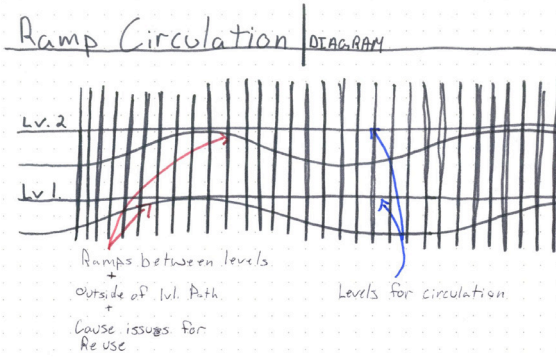 Ramp Circulation | DIAGRAM
Lv. 2
Lv 1.
Ramps between levels
+
Outside of lvl. Path
+
Cause issues for
Reuse
Levels for circulation